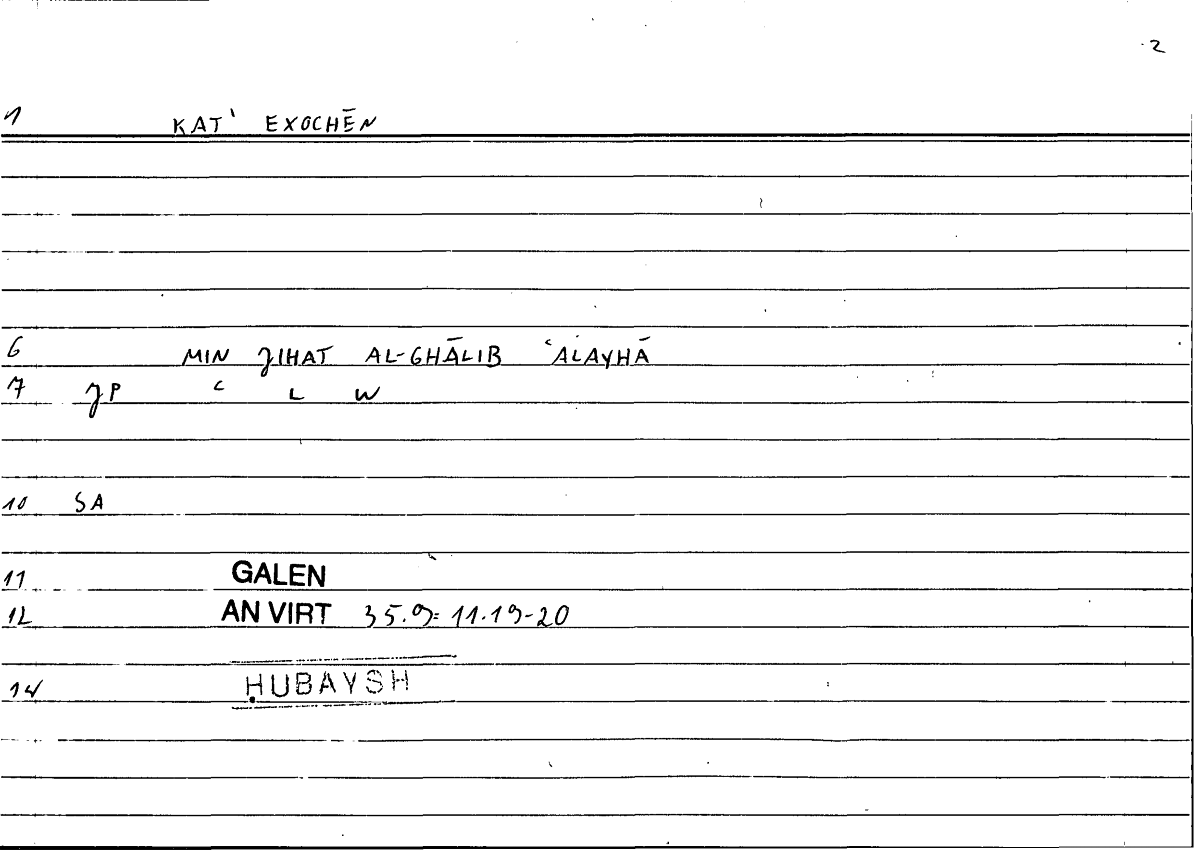 2
1 KAT' EXOCHĒN
6 MIN JIHAT AL-GHĀLIB ʿALAYHĀ
7 JP ʿ L W
10 SA
11 GALEN
12 AN VIRT 35.9 = 11.19-20
14 ḤUBAYSH